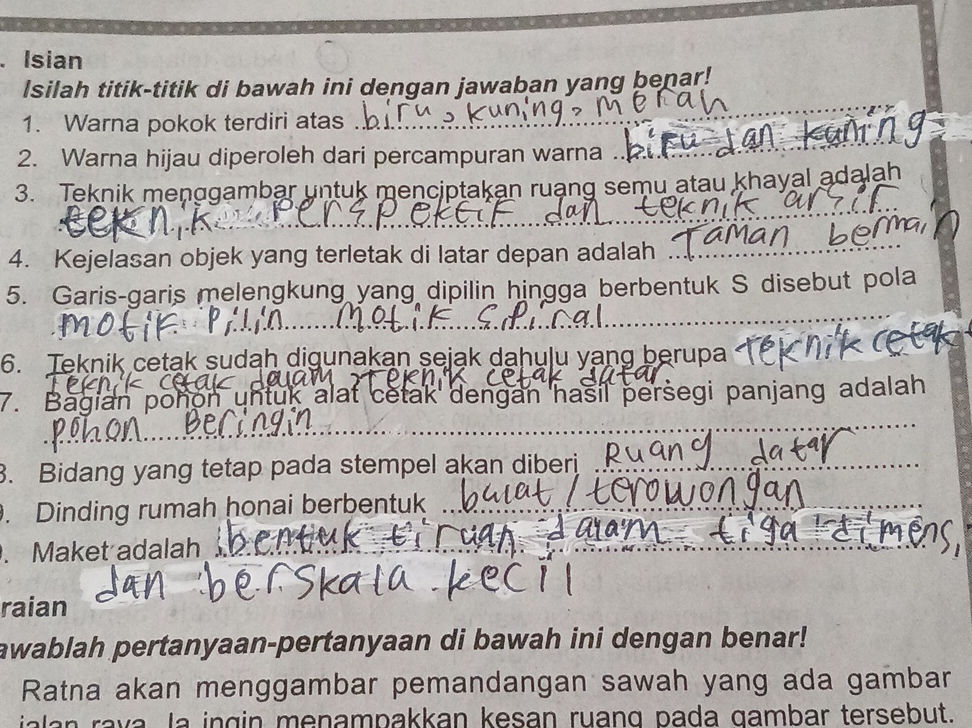 . Isian
Isilah titik-titik di bawah ini dengan jawaban yang benar!
1. Warna pokok terdiri atas biru, kuning, merah
2. Warna hijau diperoleh dari percampuran warna biru dan kuning
3. Teknik menggambar untuk menciptakan ruang semu atau khayal adalah
teknik perspektif dan teknik arsir
4. Kejelasan objek yang terletak di latar depan adalah Taman bermain
5. Garis-garis melengkung yang dipilin hingga berbentuk S disebut pola
motif Pilin Motif Spiral
6. Teknik cetak sudah digunakan sejak dahulu yang berupa teknik cetak
Teknik cetak dalam, Teknik cetak datar
7. Bagian pohon untuk alat cetak dengan hasil persegi panjang adalah
pohon Beringin
8. Bidang yang tetap pada stempel akan diberi Ruang datar
. Dinding rumah honai berbentuk bulat / terowongan
. Maket adalah bentuk tiruan dalam tiga dimensi
dan berskala kecil
raian
awablah pertanyaan-pertanyaan di bawah ini dengan benar!
Ratna akan menggambar pemandangan sawah yang ada gambar
jalan raya. Ia ingin menampakkan kesan ruang pada gambar tersebut.